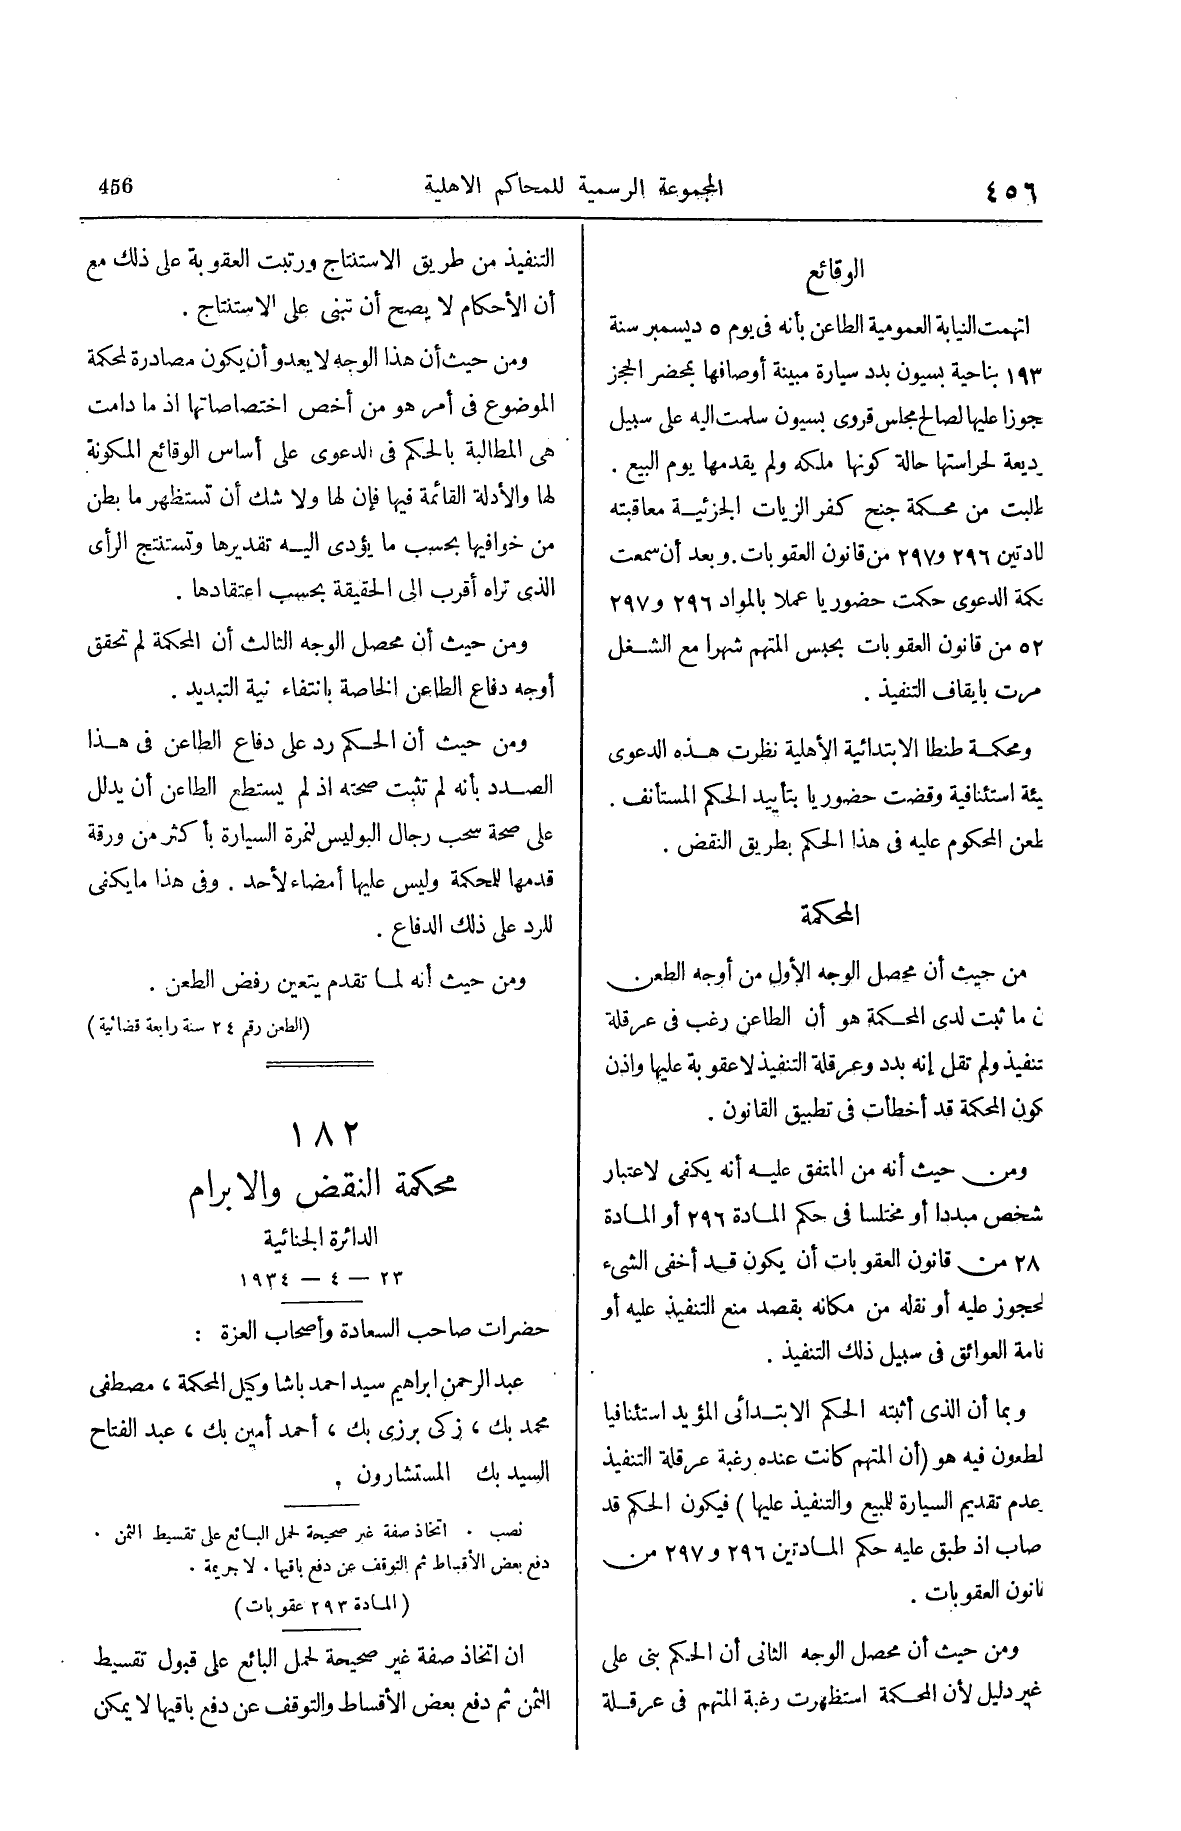 ٤٥٦
المجموعة الرسمية للمحاكم الاهلية
456
الوقائع
اتهمت النيابة العمومية الطاعن بأنه فى يوم ٥ ديسمبر سنة
١٩٣ بناحية بسيون بدد سيارة مبينة أوصافها بمحضر الحجز
جوزا عليها لصالح مجلس قروى بسيون سلمت اليه على سبيل
ديعة لحراستها حالة كونها ملكه ولم يقدمها يوم البيع .
طلبت من محكمة جنح كفر الزيات الجزئية معاقبته
لادتين ٢٩٦ و٢٩٧ من قانون العقوبات. وبعد أن سمعت
كمة الدعوى حكمت حضوريا عملا بالمواد ٢٩٦ و٢٩٧
٥٢ من قانون العقوبات بحبس المتهم شهرا مع الشغل
مرت بايقاف التنفيذ .
ومحكمة طنطا الابتدائية الأهلية نظرت هذه الدعوى
يئة استئنافية وقضت حضوريا بتأييد الحكم المستأنف .
طعن المحكوم عليه فى هذا الحكم بطريق النقض .
المحكمة
من حيث أن محصل الوجه الأول من أوجه الطعن
ن ما ثبت لدى المحكمة هو أن الطاعن رغب فى عرقلة
تنفيذ ولم تقل إنه بدد وعرقلة التنفيذ لا عقوبة عليها واذن
كون المحكمة قد أخطأت فى تطبيق القانون .
ومن حيث أنه من المتفق عليه أنه يكفى لاعتبار
شخص مبددا أو مختلسا فى حكم المادة ٢٩٦ أو المادة
٢٨ من قانون العقوبات أن يكون قد أخفى الشىء
لحجوز عليه أو نقله من مكانه بقصد منع التنفيذ عليه أو
نامة العوائق فى سبيل ذلك التنفيذ .
وبما أن الذى أثبته الحكم الابتدائى المؤيد استئنافيا
لطعون فيه هو (أن المتهم كانت عنده رغبة عرقلة التنفيذ
عدم تقديم السيارة للبيع والتنفيذ عليها) فيكون الحكم قد
صاب اذ طبق عليه حكم المادتين ٢٩٦ و٢٩٧ من
انون العقوبات .
ومن حيث أن محصل الوجه الثانى أن الحكم بنى على
غير دليل لأن المحكمة استظهرت رغبة المتهم فى عرقلة
التنفيذ من طريق الاستنتاج ورتبت العقوبة على ذلك مع
أن الأحكام لا يصح أن تبنى على الاستنتاج .
ومن حيث أن هذا الوجه لا يعدو أن يكون مصادرة لمحكمة
الموضوع فى أمر هو من أخص اختصاصاتها اذ ما دامت
هى المطالبة بالحكم فى الدعوى على أساس الوقائع المكونة
لها والأدلة القائمة فيها فإن لها ولا شك أن تستظهر ما بطن
من خوافيها بحسب ما يؤدى اليه تقديرها وتستنتج الرأى
الذى تراه أقرب الى الحقيقة بحسب اعتقادها .
ومن حيث أن محصل الوجه الثالث أن المحكمة لم تحقق
أوجه دفاع الطاعن الخاصة بانتفاء نية التبديد .
ومن حيث أن الحكم رد على دفاع الطاعن فى هذا
الصدد بأنه لم تثبت صحته اذ لم يستطع الطاعن أن يدلل
على صحة سحب رجال البوليس لنمرة السيارة بأكثر من ورقة
قدمها للمحكمة وليس عليها أمضاء لأحد . وفى هذا ما يكفى
للرد على ذلك الدفاع .
ومن حيث أنه لما تقدم يتعين رفض الطعن .
(الطعن رقم ٢٤ سنة رابعة قضائية)
١٨٢
محكمة النقض والابرام
الدائرة الجنائية
٢٣ — ٤ — ١٩٣٤
حضرات صاحب السعادة وأصحاب العزة :
عبد الرحمن ابراهيم سيد احمد باشا وكيل المحكمة ، مصطفى
محمد بك ، زكى برزى بك ، أحمد أمين بك ، عبد الفتاح
السيد بك المستشارون .
نصب . اتخاذ صفة غير صحيحة لحمل البائع على تقسيط الثمن .
دفع بعض الأقساط ثم التوقف عن دفع باقيها . لا جريمة .
(المادة ٢٩٣ عقوبات)
ان اتخاذ صفة غير صحيحة لحمل البائع على قبول تقسيط
الثمن ثم دفع بعض الأقساط والتوقف عن دفع باقيها لا يمكن